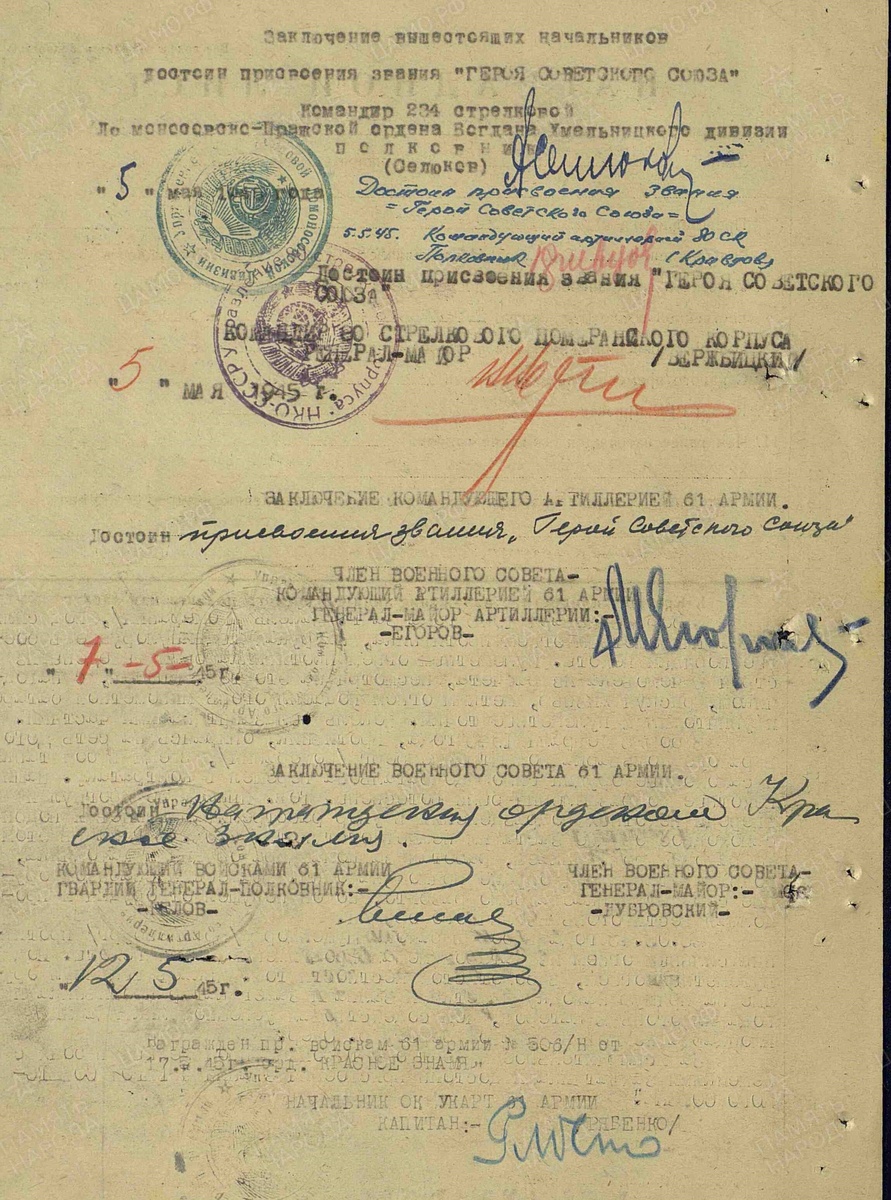 Заключение вышестоящих начальников
достоин присвоения звания "ГЕРОЯ СОВЕТСКОГО СОЮЗА"
Командир 234 стрелковой
Ломоносовско-Пражской ордена Богдана Хмельницкого дивизии
полковник
(Селюков)
"5" мая 1945 года
Достоин присвоения звания
=Герой Советского Союза=
5.5.45. Командующий артиллерией 80 СК
Полковник (Кравцов)
Достоин присвоения звания "ГЕРОЯ СОВЕТСКОГО
СОЮЗА"
КОМАНДИР 80 СТРЕЛКОВОГО ПОМЕРАНСКОГО КОРПУСА
ГЕНЕРАЛ-МАЙОР /ВЕРЖБИЦКИЙ/
"5" МАЯ 1945 г.
ЗАКЛЮЧЕНИЕ КОМАНДУЮЩЕГО АРТИЛЛЕРИЕЙ 61 АРМИИ.
Достоин присвоения звания „Герой Советского Союза"
ЧЛЕН ВОЕННОГО СОВЕТА-
КОМАНДУЮЩИЙ АРТИЛЛЕРИЕЙ 61 АРМИИ
ГЕНЕРАЛ-МАЙОР АРТИЛЛЕРИИ:-
-ЕГОРОВ-
"7"-5- 45г.
ЗАКЛЮЧЕНИЕ ВОЕННОГО СОВЕТА 61 АРМИИ.
Достоин награждения орденом Кра
сное Знамя.
КОМАНДУЮЩИЙ ВОЙСКАМИ 61 АРМИИ ЧЛЕН ВОЕННОГО СОВЕТА-
ГВАРДИИ ГЕНЕРАЛ-ПОЛКОВНИК:- ГЕНЕРАЛ-МАЙОР:-
-БЕЛОВ- -ДУБРОВСКИЙ-
"12" 5 45г.
Награжден пр. войскам 61 армии № 506/Н от
17.5.45г. орд. КРАСНОЕ ЗНАМЯ.
НАЧАЛЬНИК ОК УКАРТ 61 АРМИИ
КАПИТАН:- РЯБЕНКО/